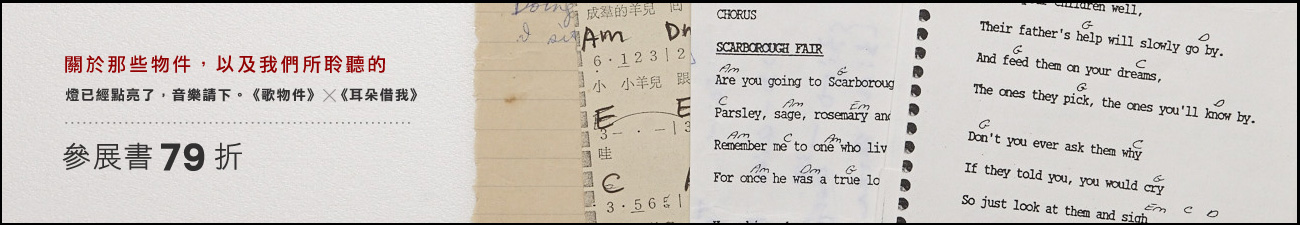 關於那些物件，以及我們所聆聽的
燈已經點亮了，音樂請下。《歌物件》╳《耳朵借我》
參展書 79 折
Doing
成羣的羊兒
Am
6·123 | 2
小 小羊兒 跟
E E
3 - · - | 3
哇
C
3·56
CHORUS
SCARBOROUGH FAIR
Am G
Are you going to Scarboroug
C Am Em
Parsley, sage, rosemary and
Am C Am
Remember me to one who liv
Am Dm G
For once he was a true lo
children well,
G D
Their father's help will slowly go by.
G C
And feed them on your dreams,
G D
The ones they pick, the ones you'll know by.
G C
Don't you ever ask them why
G
If they told you, you would cry
Em C D
So just look at them and sigh